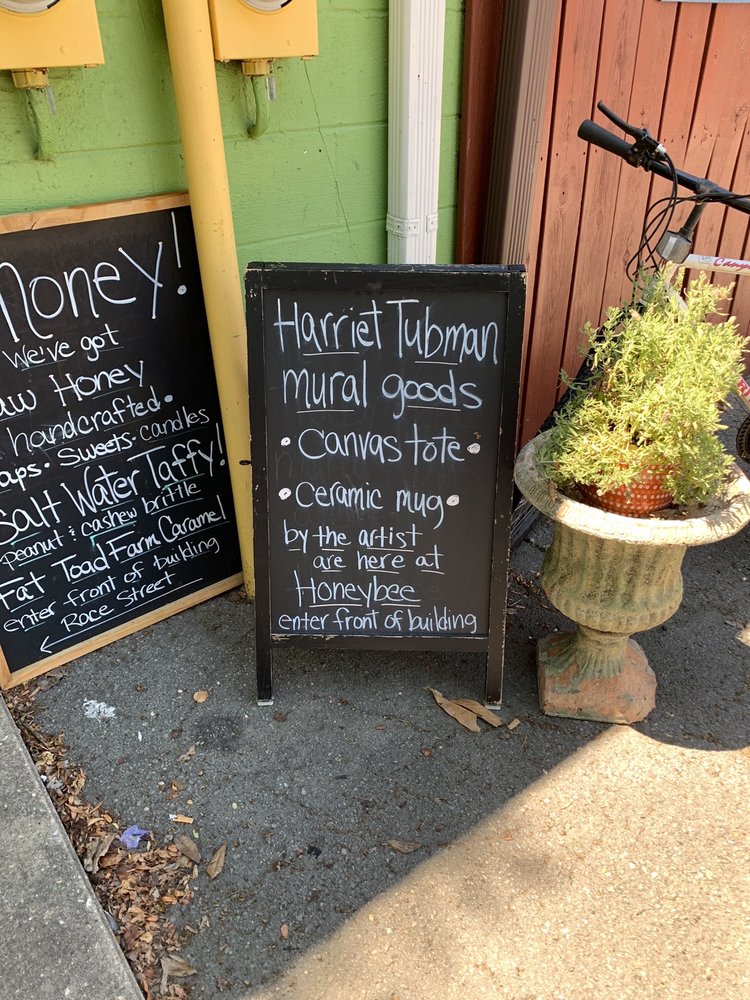 Honey!
We've got
aw Honey
handcrafted.
aps. Sweets. candles
Salt Water Taffy!
peanut & cashew brittle
Fat Toad Farm Caramel
enter front of building
← Race Street
Harriet Tubman
mural goods
• Canvas tote •
• Ceramic mug •
by the artist
are here at
Honeybee
enter front of building